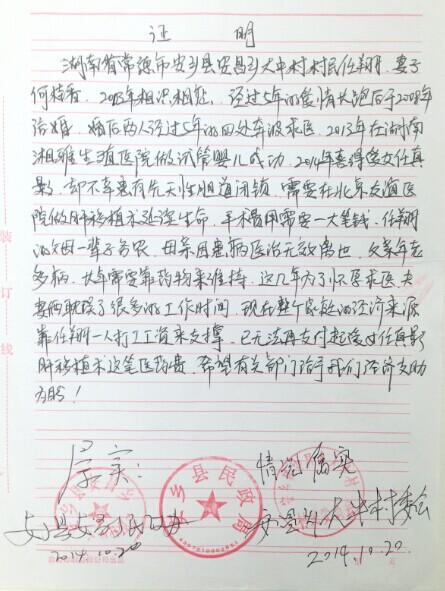 证 明
湖南省常德市安乡县安昌乡大中村村民任翔，妻子
何桂香，2003年相识相恋，经过5年的爱情长跑后于2008年
结婚，婚后两人经过5年的四处奔波求医，2013年在湖南
湘雅生殖医院做试管婴儿成功，2014年喜得爱女任真
影，却不幸患有先天性胆道闭锁，需要在北京友谊医
院做肝移植术延续生命，手术费用需要一大笔钱，任翔
的父母一辈子务农，母亲因患病医治无效离世，父亲年老
多病，长年需要靠药物来维持，这几年为了怀孕求医，夫
妻俩耽误了很多的工作时间，现在整个家庭的经济来源
靠任翔一人打工工资来支撑，已无法再支付起爱女任真影
肝移植术这笔医药费，希望有关部门给予我们经济支助
为盼！
属实！
情况属实
安乡县民政局
大中村委会
2014.10.20
2014.10.20
装订线